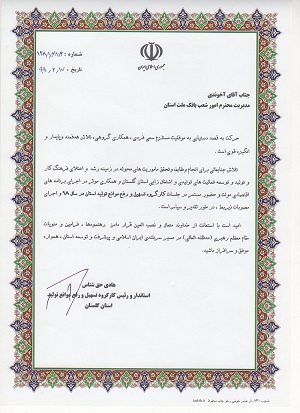 جمهوری اسلامی ایران
شماره :
تاریخ :
جناب آقای آخوندی
مدیریت محترم امور شعب بانک ملت استان
حرکت به قصد دستیابی به موفقیت مستلزم سعی فردی، همکاری گروهی، تلاش هدفمند وپایدار و
انگیزه قوی است .
تلاش جنابعالی برای انجام وظایف وتحقق ماموریت های محوله در زمینه رشد و اعتلای فرهنگ کار
و تولید و توسعه فعالیت های تولیدی و اشتغال زایی استان گلستان و همکاری موثر در اجرای برنامه های
اقتصادی دولت و حضور مستمر در جلسات کارگروه تسهیل و رفع موانع تولید استان در سال ۹۸ و اجرای
مصوبات ذیربط ، در خور تقدیر و سپاس است .
امید است با استعانت از خداوند متعال و نصب العین قرار دادن رهنمودها ، فرامین و منویات
مقام معظم رهبری (مدظله العالی) در مسیر سربلندی ایران اسلامی و پیشرفت و توسعه استان ، همواره
موفق و سرافراز باشید.
هادی حق شناس
استاندار و رئیس کارگروه تسهیل و رفع موانع تولید
استان گلستان